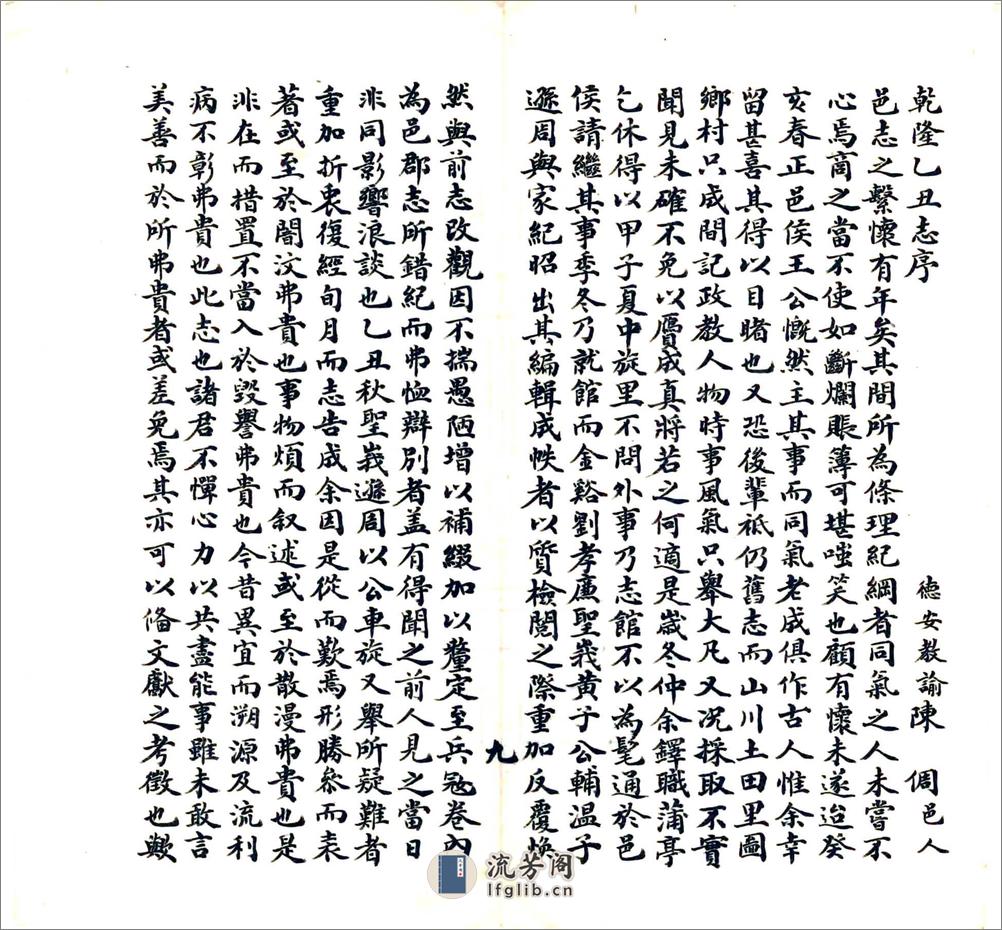 乾隆乙丑志序
德安教諭陳 倜邑人
邑志之繫懷有年矣其間所為條理紀綱者同氣之人未嘗不
心焉商之當不使如斷爛賬簿可堪嗤笑也顧有懷未遂迨癸
亥春正邑侯王公慨然主其事而同氣老成俱作古人惟余幸
留甚喜其得以目睹也又恐後輩祗仍舊志而山川土田里圖
鄉村只成間記政教人物時事風氣只舉大凡又况採取不實
聞見未確不免以贗成真將若之何適是歲冬仲余鐸職蒲亭
乞休得以甲子夏中旋里不問外事乃志館不以為髦通於邑
侯請繼其事季冬乃就館而金谿劉孝廉聖羲黄子公輔温子
遜周與家紀昭出其編輯成帙者以質檢閲之際重加反覆煥
九
然與前志改觀因不揣愚陋增以補綴加以釐定至兵寇卷内
為邑郡志所錯紀而弗恤辯别者盖有得聞之前人見之當日
非同影響浪談也乙丑秋聖羲遜周以公車旋又舉所疑難者
重加折衷復經旬月而志告成余因是從而歎焉形勝叅而表
著或至於闇汶弗貴也事物煩而叙述或至於散漫弗貴也是
非在而措置不當入於毀譽弗貴也今昔異宜而溯源及流利
病不彰弗貴也此志也諸君不憚心力以共盡能事雖未敢言
美善而於所弗貴者或差免焉其亦可以俻文獻之考徵也歟
流芳阁
lfglib.cn